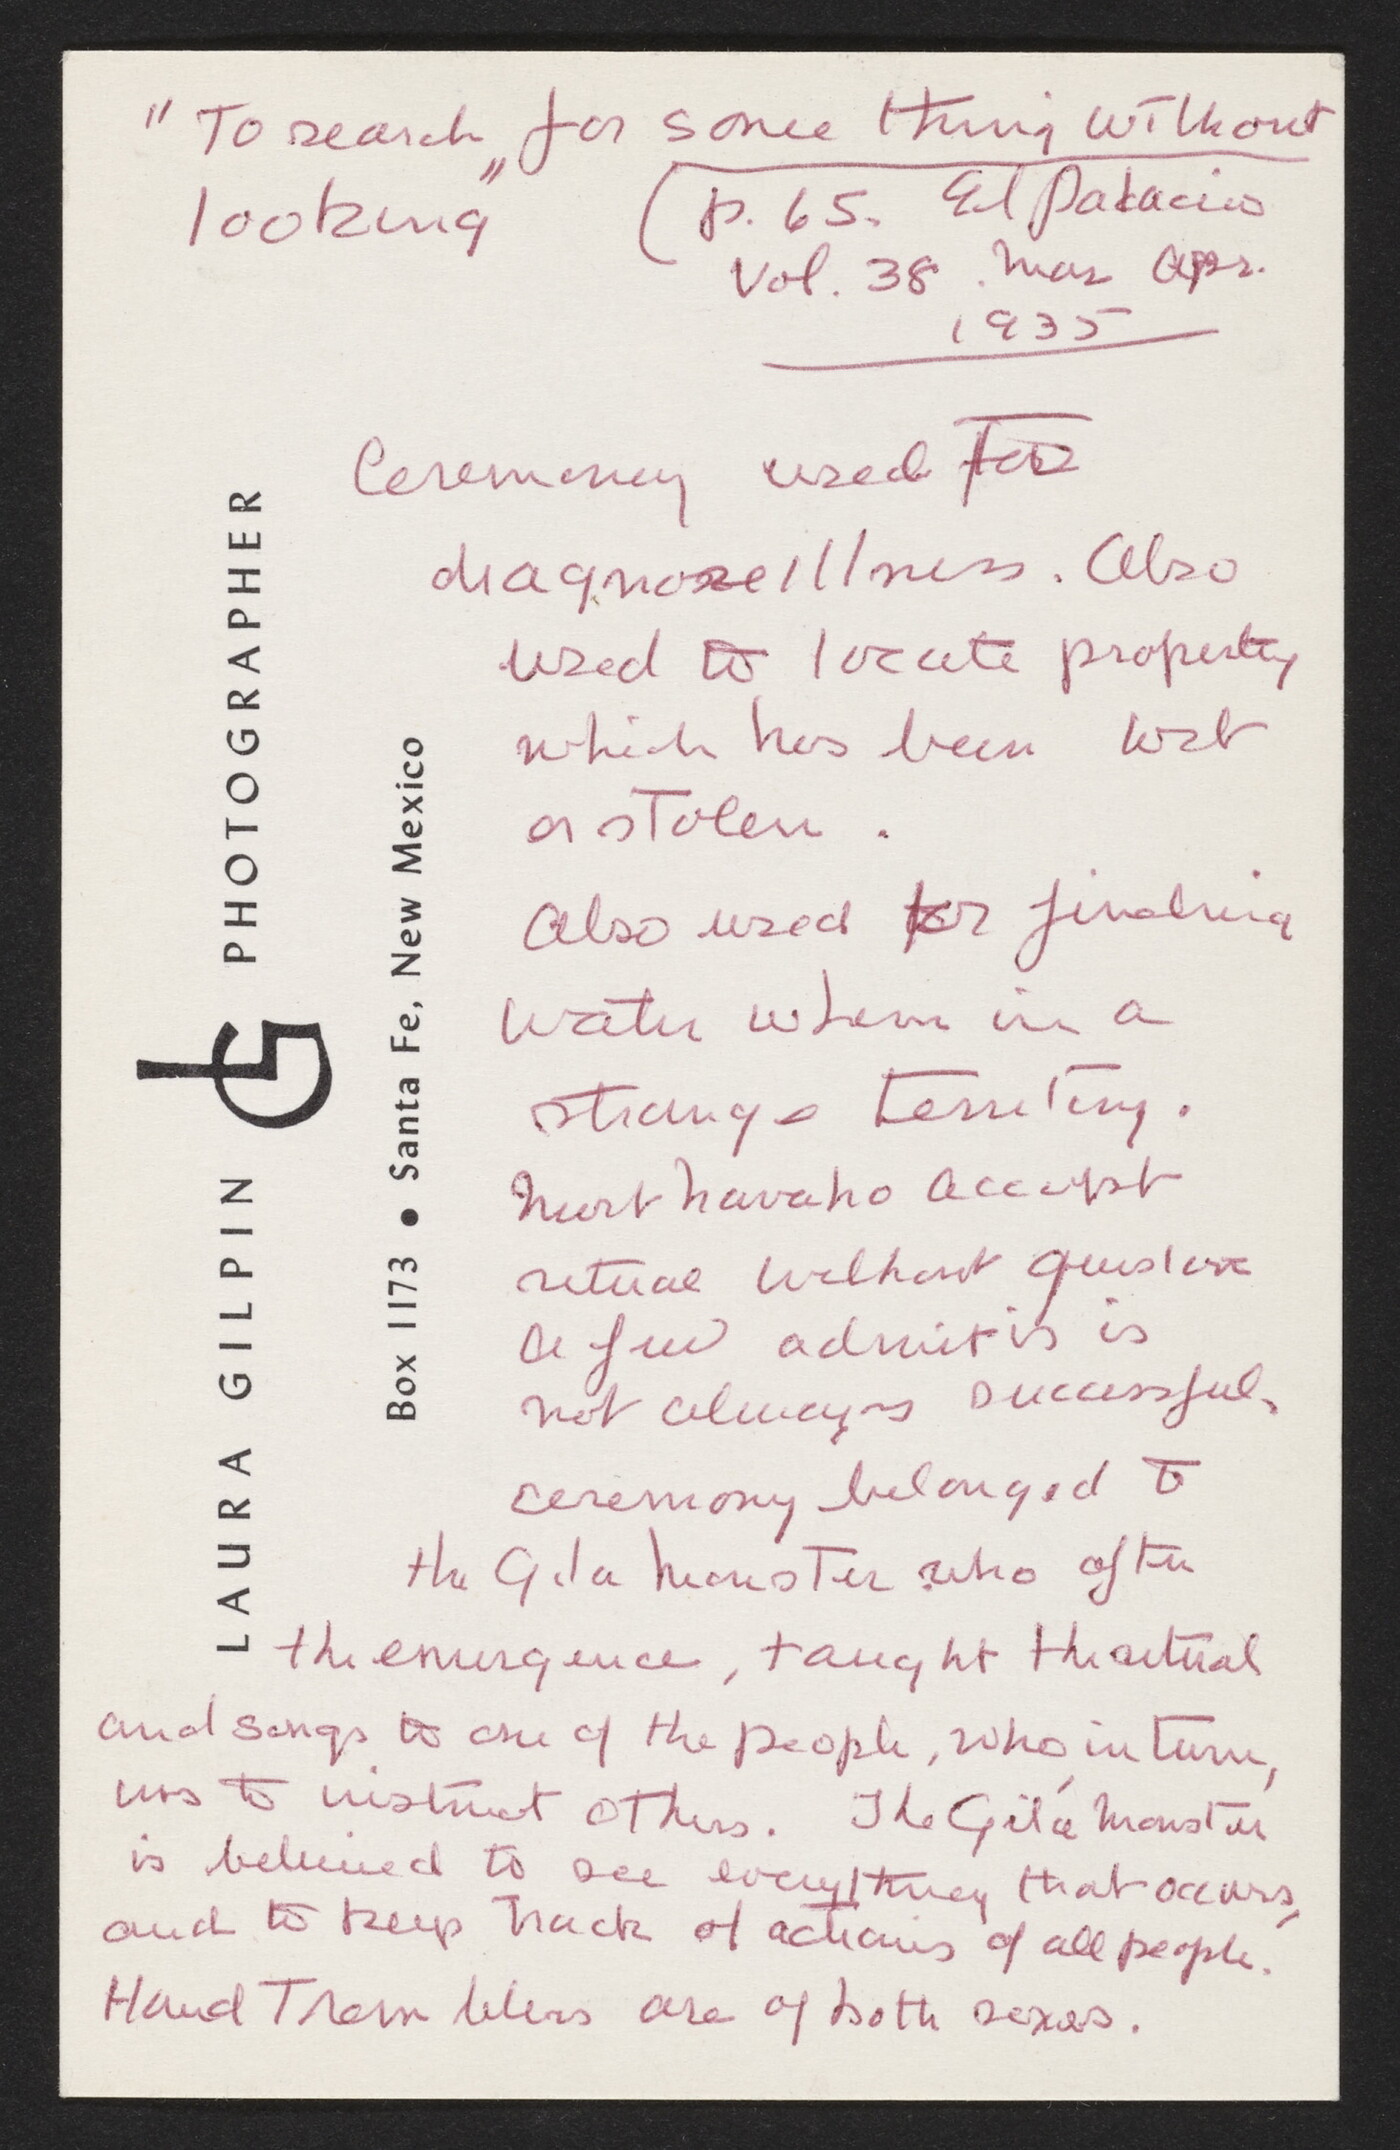 "To search for some thing without
looking"
(p. 65. El Palacio
Vol. 38. Mar Apr.
1935
Ceremony used
diagnose illness. Also
used to locate property
which has been lost
or stolen.
Also used for finding
water when in a
strange territory.
Most Navaho accept
ritual without
a few admit is is
not always successful.
ceremony belonged to
the Gila Monster who after
the emergence, taught the ritual
and songs to one of the people, who, in turn,
was to instruct others. The Gila Monster
is believed to see everything that occurs,
and to keep track of actions of all people.
Hand Tremblers are of both sexes.
LAURA GILPIN G PHOTOGRAPHER
Box 1173 • Santa Fe, New Mexico